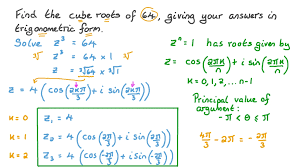 Find the cube roots of 64, giving your answers in
trigonometric form.
Solve z³ = 64
∛ z³ = 64 × 1 ∛
z = ∛64 × ∛1
z = 4 (cos(2kπ/3) + i sin(2kπ/3))
k = 0 z₁ = 4
k = 1 z₂ = 4 (cos(2π/3) + i sin(2π/3))
k = 2 z₃ = 4 (cos(-2π/3) + i sin(-2π/3))
zⁿ = 1 has roots given by
z = cos(2πk/n) + i sin(2πk/n)
k = 0, 1, 2, ... n-1
Principal value of
argument:
-π < θ ≤ π
4π/3 - 2π = -2π/3